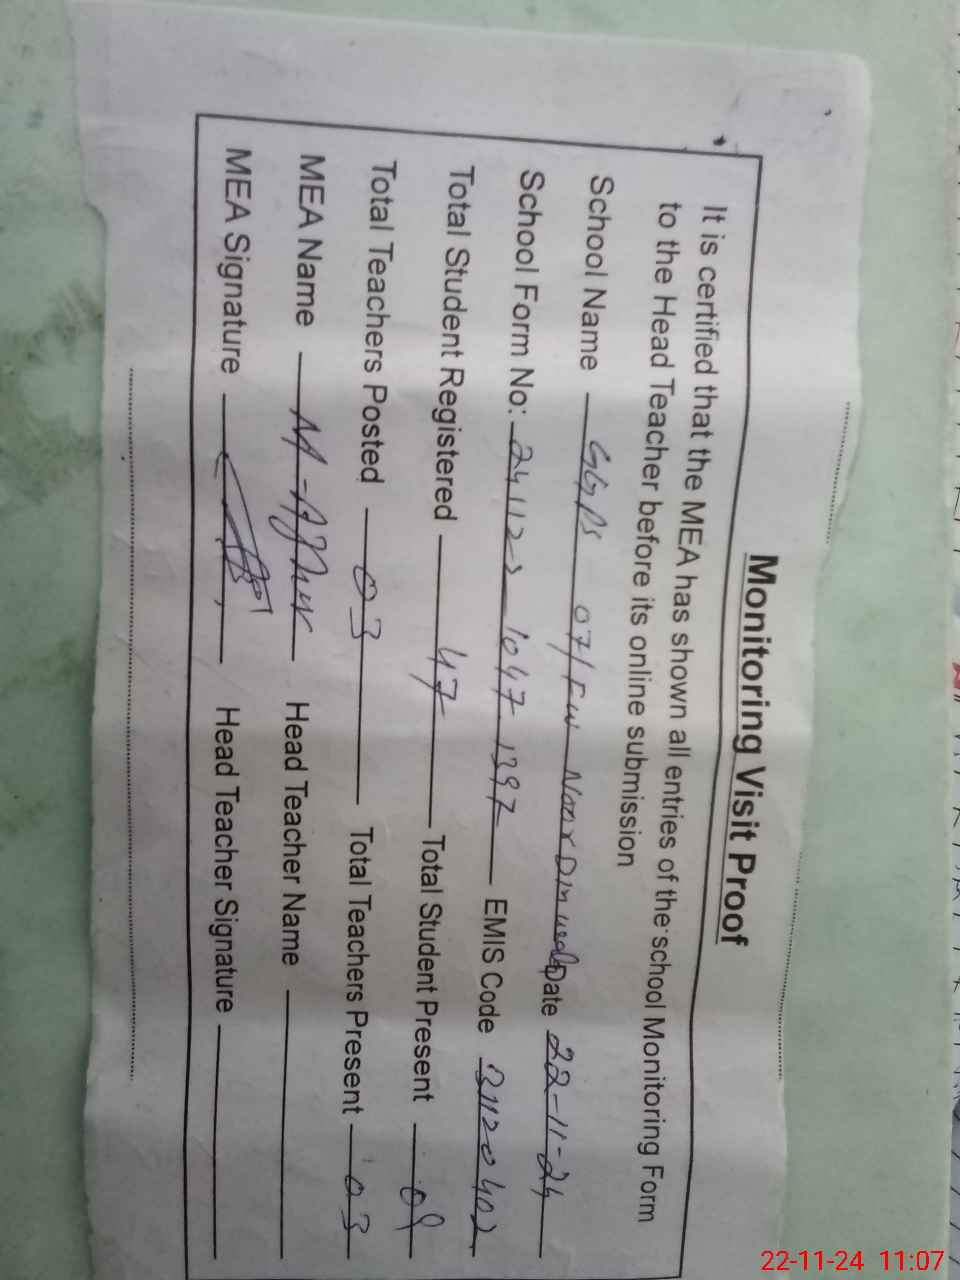 Monitoring Visit Proof
It is certified that the MEA has shown all entries of the school Monitoring Form
to the Head Teacher before its online submission
School Name GGPS 07/FW Noor Din Date 22-11-24
School Form No: 1047 1397 EMIS Code 31120402
Total Student Registered 47 Total Student Present
Total Teachers Posted 03 Total Teachers Present 03
MEA Name Head Teacher Name
MEA Signature Head Teacher Signature
22-11-24 11:07